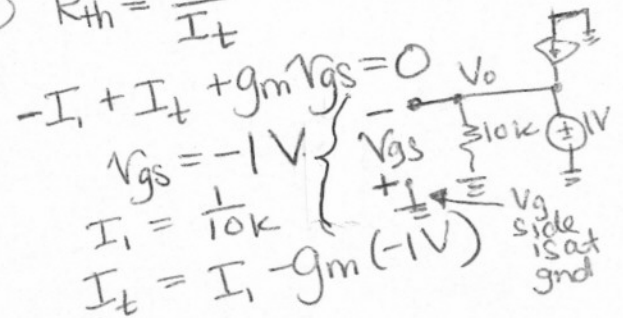 ) Rth = — / It
-I1 + It + gmVgs = 0
Vgs = -1V
I1 = 1/10K
It = I1 - gm(-1V)
V0
-
Vgs
+
10K
±
1V
Vg
side
is at
gnd